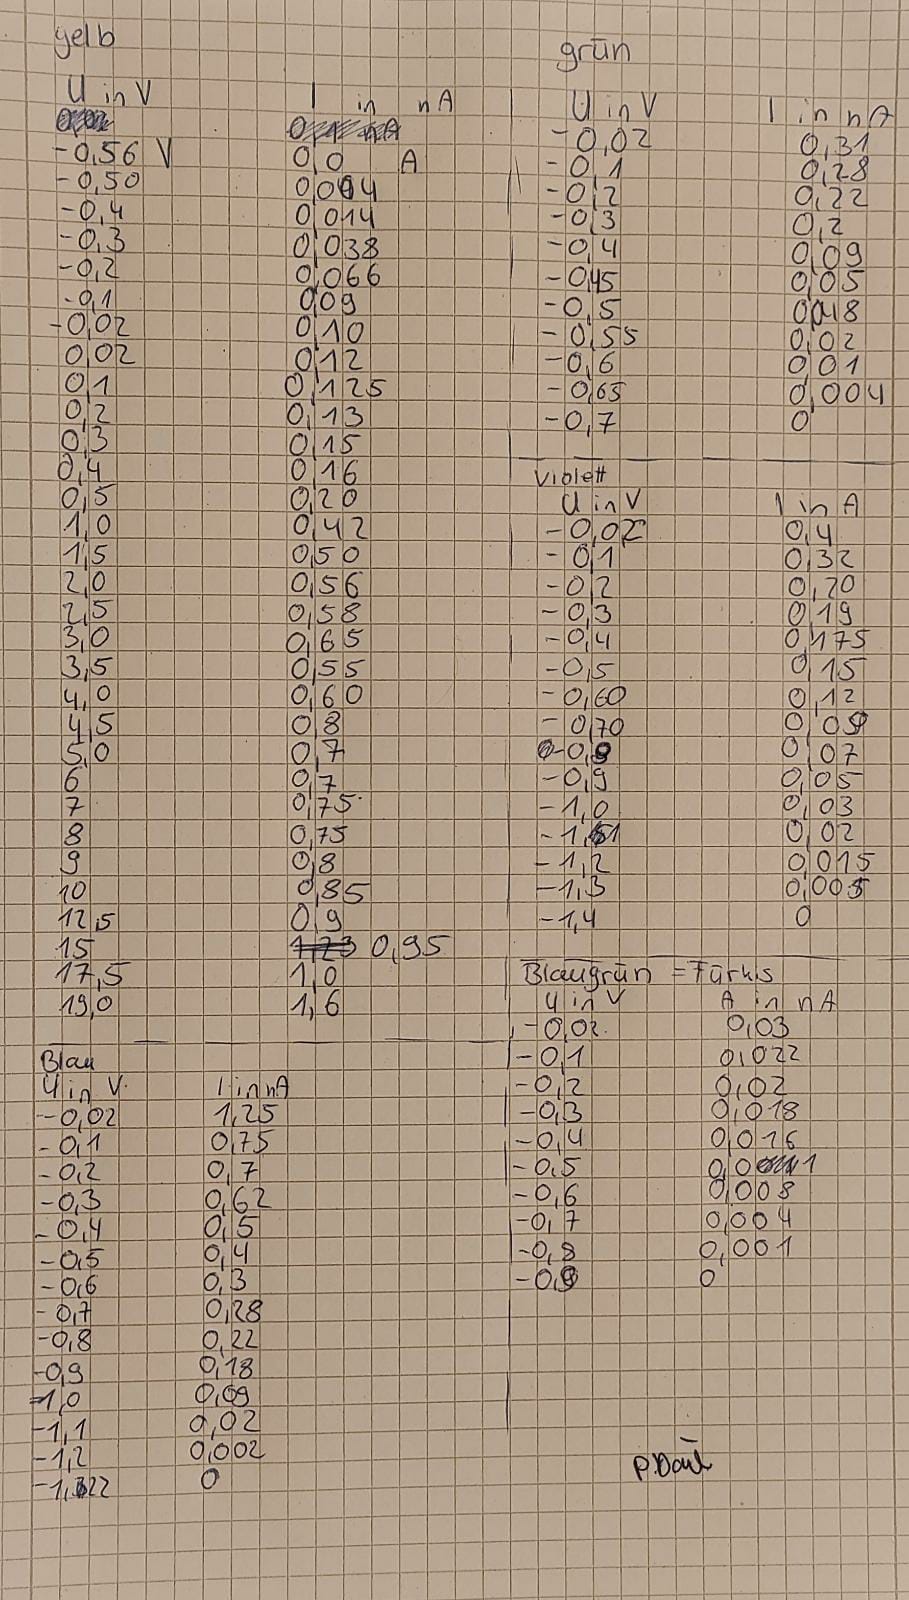 gelb
U in V I in nA
-0,56 V 0,0 A
-0,50 0,004
-0,4 0,014
-0,3 0,038
-0,2 0,066
-0,1 0,09
-0,02 0,10
0,02 0,12
0,1 0,125
0,2 0,13
0,3 0,15
0,4 0,16
0,5 0,20
1,0 0,42
1,5 0,50
2,0 0,56
2,5 0,58
3,0 0,65
3,5 0,55
4,0 0,60
4,5 0,8
5,0 0,7
6 0,7
7 0,75
8 0,75
9 0,8
10 0,85
12,5 0,9
15 1,23 0,95
17,5 1,0
19,0 1,6
Blau
U in V I in nA
-0,02 1,25
-0,1 0,75
-0,2 0,7
-0,3 0,62
-0,4 0,5
-0,5 0,4
-0,6 0,3
-0,7 0,28
-0,8 0,22
-0,9 0,18
-1,0 0,09
-1,1 0,02
-1,2 0,002
0
grün
U in V I in nA
-0,02 0,31
-0,1 0,28
-0,2 0,22
-0,3 0,2
-0,4 0,09
-0,45 0,05
-0,5 0,048
-0,55 0,02
-0,6 0,01
-0,65 0,004
-0,7 0
Violett
U in V I in A
-0,02 0,4
-0,1 0,32
-0,2 0,20
-0,3 0,19
-0,4 0,175
-0,5 0,15
-0,60 0,12
-0,70 0,09
-0,8 0,07
-0,9 0,05
-1,0 0,03
-1,1 0,02
-1,2 0,015
-1,3 0,005
-1,4 0
Blaugrün = Türkis
U in V A in nA
-0,02 0,03
-0,1 0,022
-0,2 0,02
-0,3 0,018
-0,4 0,016
-0,5 0,01
-0,6 0,008
-0,7 0,004
-0,8 0,001
-0,9 0